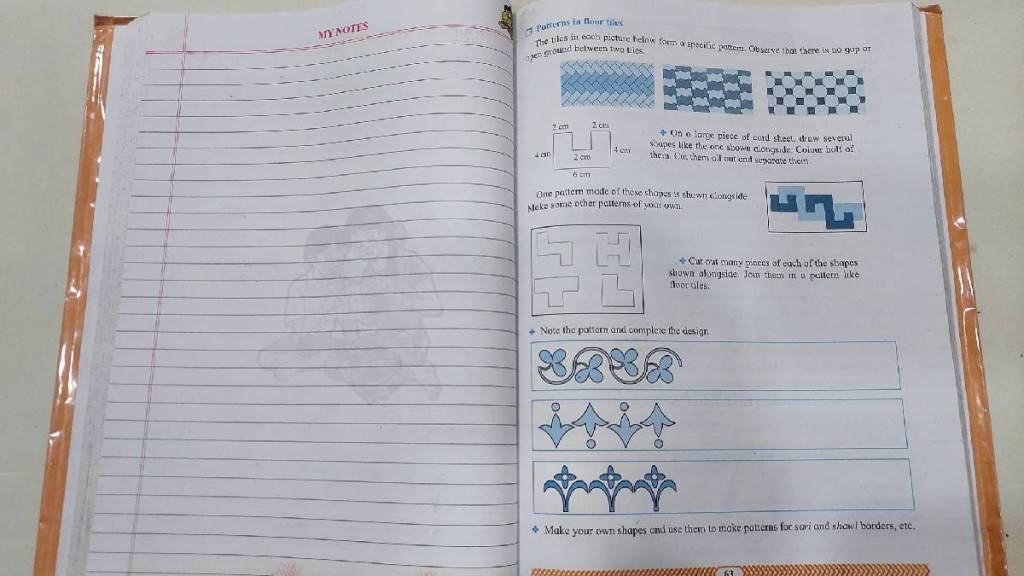 MY NOTES
Patterns in floor tiles
The tiles in each picture below form a specific pattern. Observe that there is no gap or
open ground between two tiles.
2 cm 2 cm
4 cm 2 cm 4 cm
6 cm
On a large piece of card sheet, draw several
shapes like the one shown alongside. Colour half of
them. Cut them all out and separate them.
One pattern made of these shapes is shown alongside.
Make some other patterns of your own.
Cut out many pieces of each of the shapes
shown alongside. Join them in a pattern like
floor tiles.
Note the pattern and complete the design.
Make your own shapes and use them to make patterns for sari and shawl borders, etc.
63